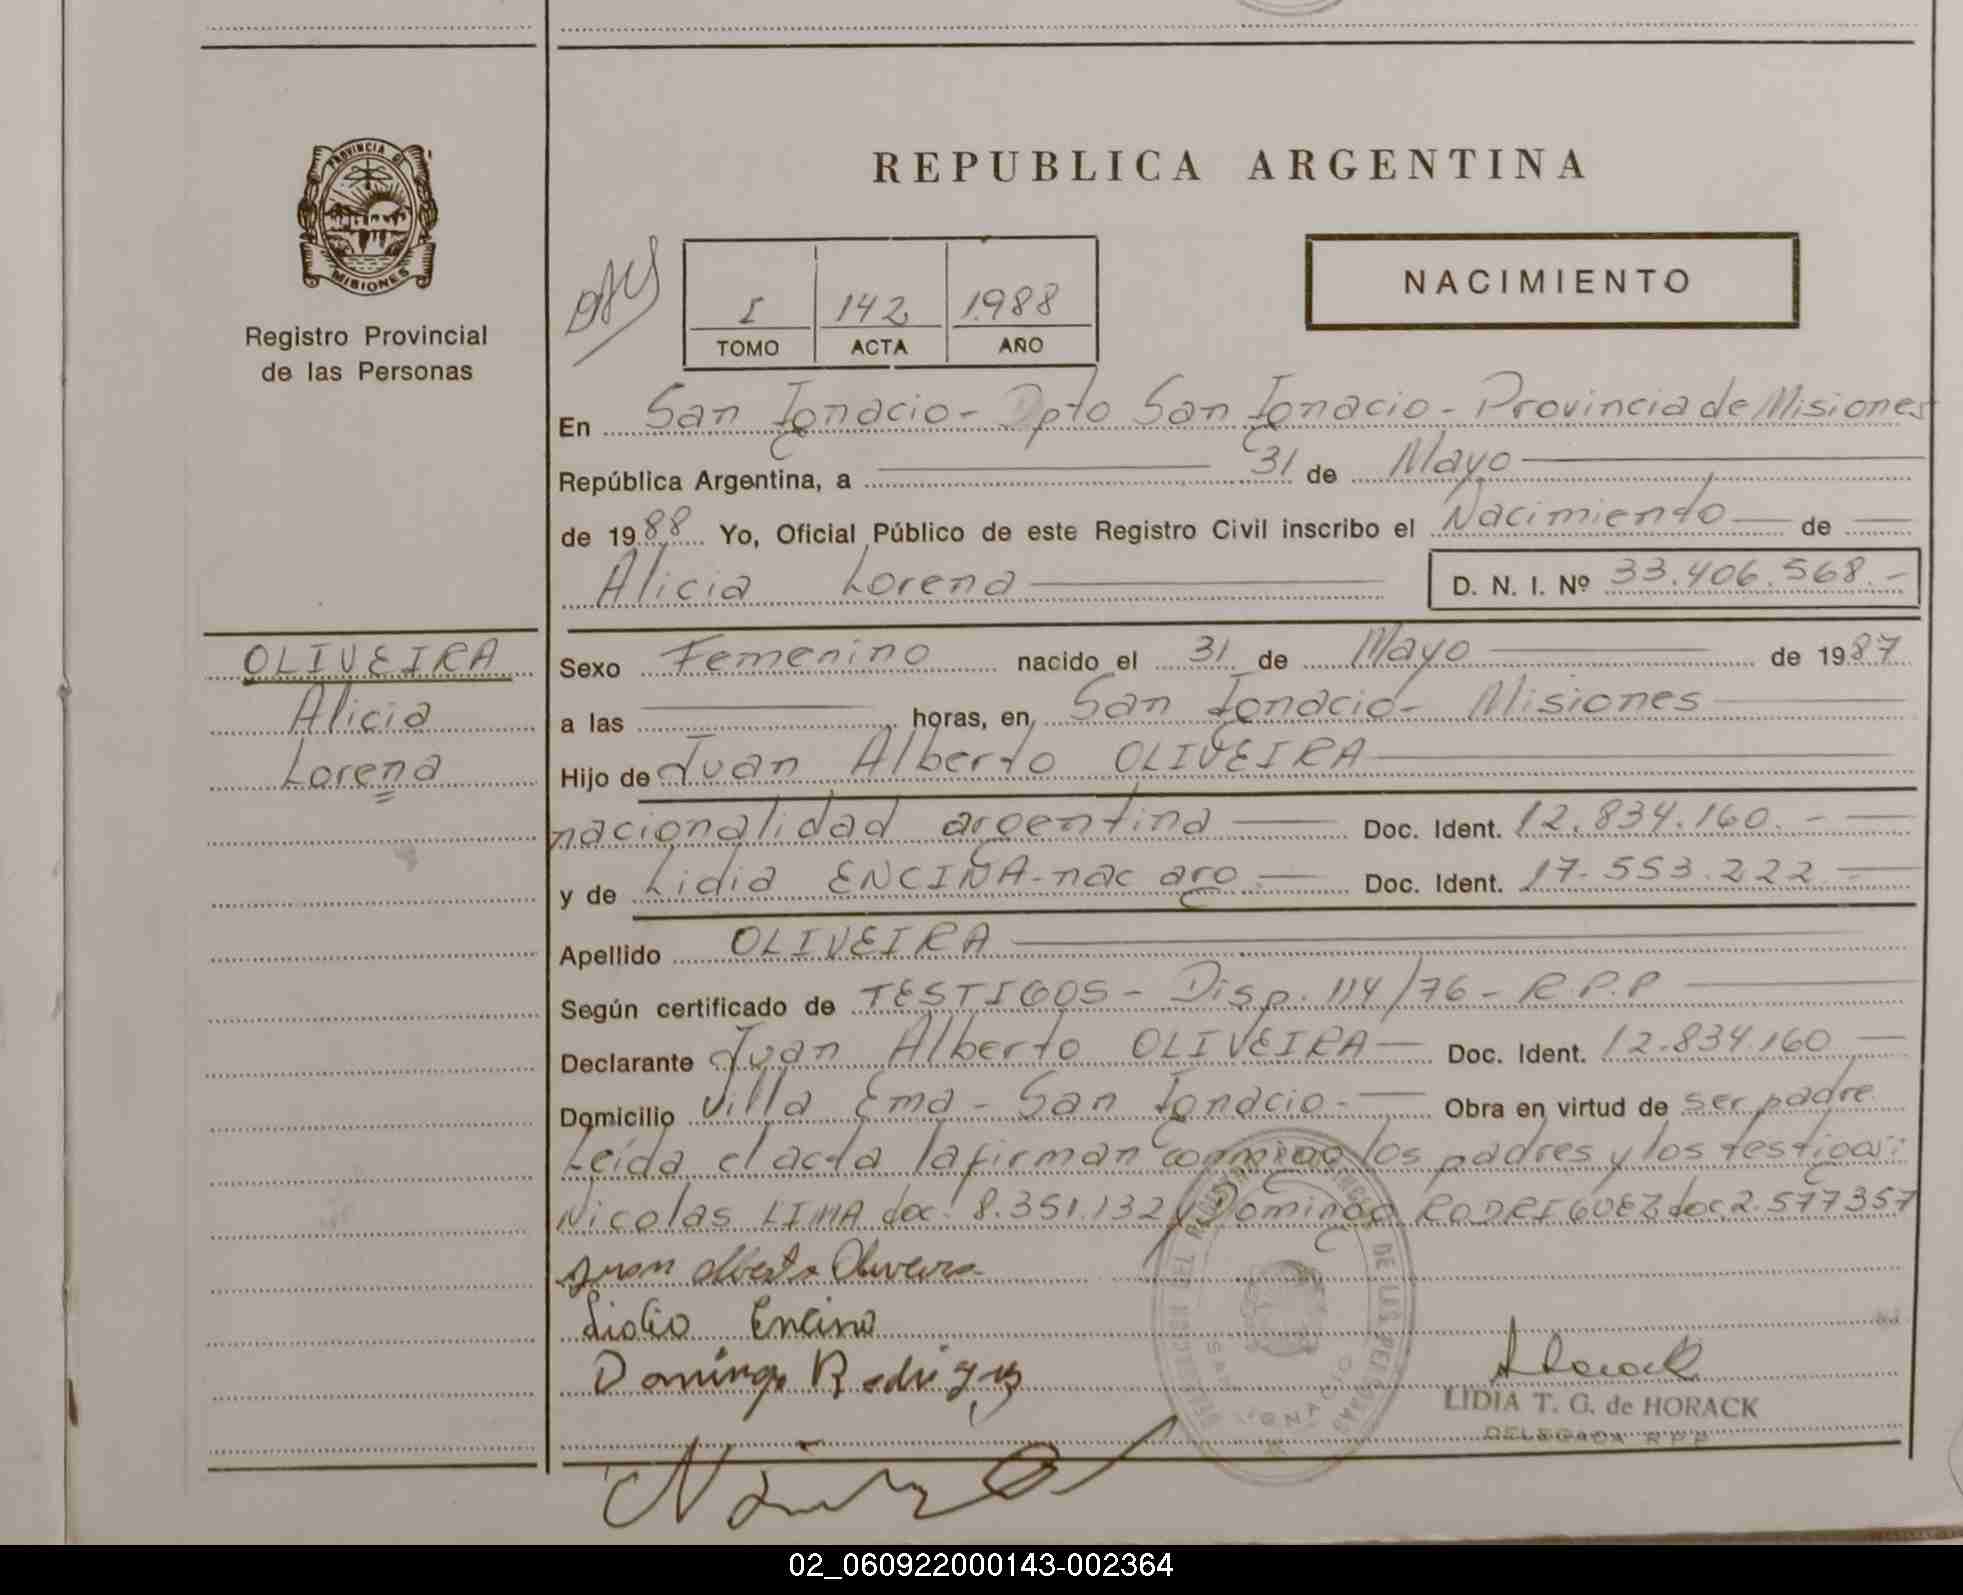 PROVINCIA DE
MISIONES
Registro Provincial
de las Personas
REPUBLICA ARGENTINA
NACIMIENTO
I 142 1988
TOMO ACTA AÑO
En San Ignacio - Dpto San Ignacio - Provincia de Misiones
República Argentina, a 31 de Mayo
de 1988 Yo, Oficial Público de este Registro Civil inscribo el Nacimiento de
Alicia Lorena D. N. I. Nº 33.406.568.-
OLIVEIRA
Alicia
Lorena
Sexo Femenino nacido el 31 de Mayo de 1987
a las horas, en San Ignacio - Misiones
Hijo de Juan Alberto OLIVEIRA
nacionalidad argentina Doc. Ident. 12.834.160.-
y de Lidia ENCINA - nac arg. Doc. Ident. 17.553.222.-
Apellido OLIVEIRA
Según certificado de TESTIGOS - Disp. 114/76 - R.P.P
Declarante Juan Alberto OLIVEIRA Doc. Ident. 12.834.160
Domicilio Villa Ema - San Ignacio - Obra en virtud de ser padre
Leída el acta la firman conmigo los padres y los testigos:
Nicolas LIMA doc. 8.351.132 y Domingo RODRIGUEZ doc. 2.577357
Juan Alberto Oliveira
Lidia Encina
Domingo Rodriguez
LIDIA T. G. de HORACK
DELEGADA R.P.P.
02_060922000143-002364